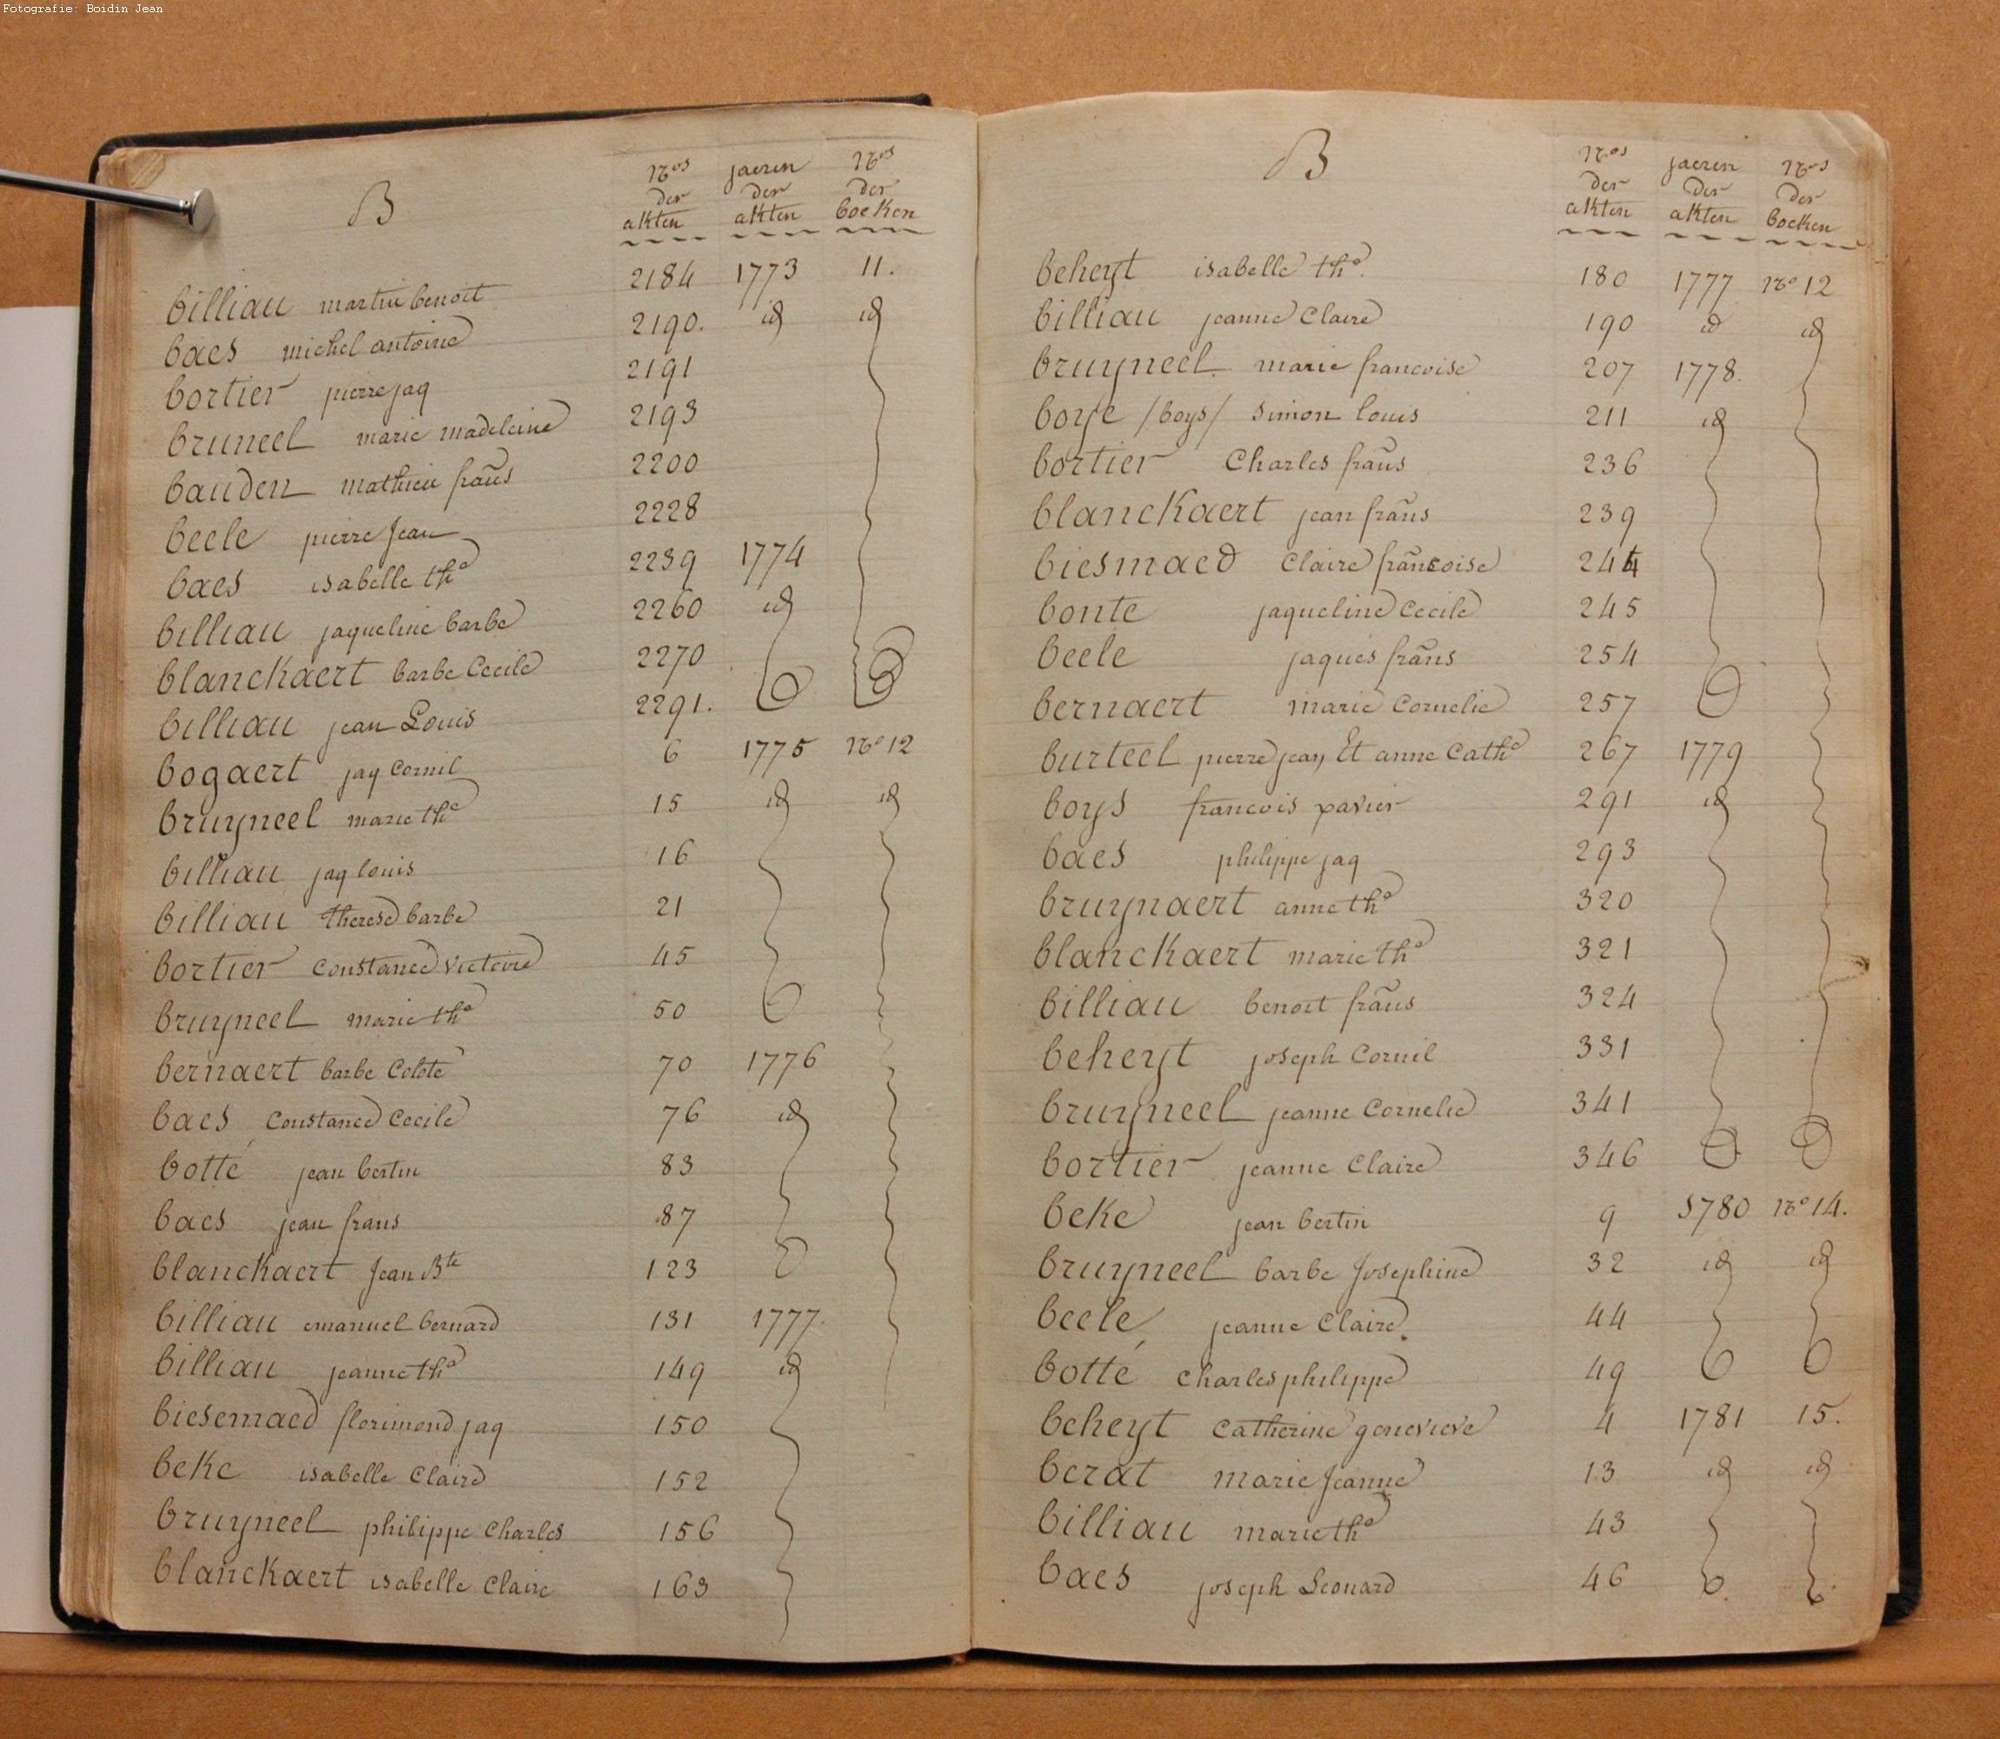 Fotografie: Boidin Jean
B
Nos der akten
jaeren der akten
Nos der boeken
billiau martin benoit 2184 1773 11.
baes michel antoine 2190. id id
bortier pierre jaq 2191
bruneel marie madeleine 2193
bauden mathieu frans 2200
beele pierre Jean 2228
baes isabelle the 2239 1774
billiau jaqueline barbe 2260 id
blanckaert barbe Cecile 2270
billiau jean Louis 2291.
bogaert jaq Cornil 6 1775 No 12
bruyneel marie the 15 id id
billiau jaq louis 16
billiau therese barbe 21
bortier Constance Victoire 45
bruyneel marie the 50
bernaert barbe Colete 70 1776
baes Constance Cecile 76 id
botté jean bertin 83
baes jean frans 87
blanckaert Jean Bte 123
billiau emanuel bernard 131 1777
billiau jeanne the 149 id
biesemaed florimond jaq 150
beke isabelle Claire 152
bruyneel philippe Charles 156
blanckaert isabelle Claire 163
B
Nos der akten
jaeren der akten
Nos der boeken
beheyt isabelle the 180 1777 No 12
billiau jeanne Claire 190 id id
bruyneel marie francoise 207 1778.
boye /boys/ Simon louis 211 id
bortier Charles frans 236
blanckaert jean frans 239
biesmaed Claire francoise 244
bonte jaqueline Cecile 245
beele jaques frans 254
bernaert marie Cornelie 257
burteel pierre jean Et anne Cathe 267 1779
boys francois xavier 291 id
baes philippe jaq 293
bruynaert anne the 320
blanckaert marie the 321
billiau benoit frans 324
beheyt joseph Cornil 331
bruyneel jeanne Cornelie 341
bortier jeanne Claire 346
beke jean bertin 9 1780 No 14.
bruyneel barbe Josephine 32 id id
beele jeanne Claire 44
botté Charles philippe 49
beheyt Catherine genevieve 4 1781 15.
berat marie Jeanne 13 id id
billiau marie the 43
baes joseph Leonard 46